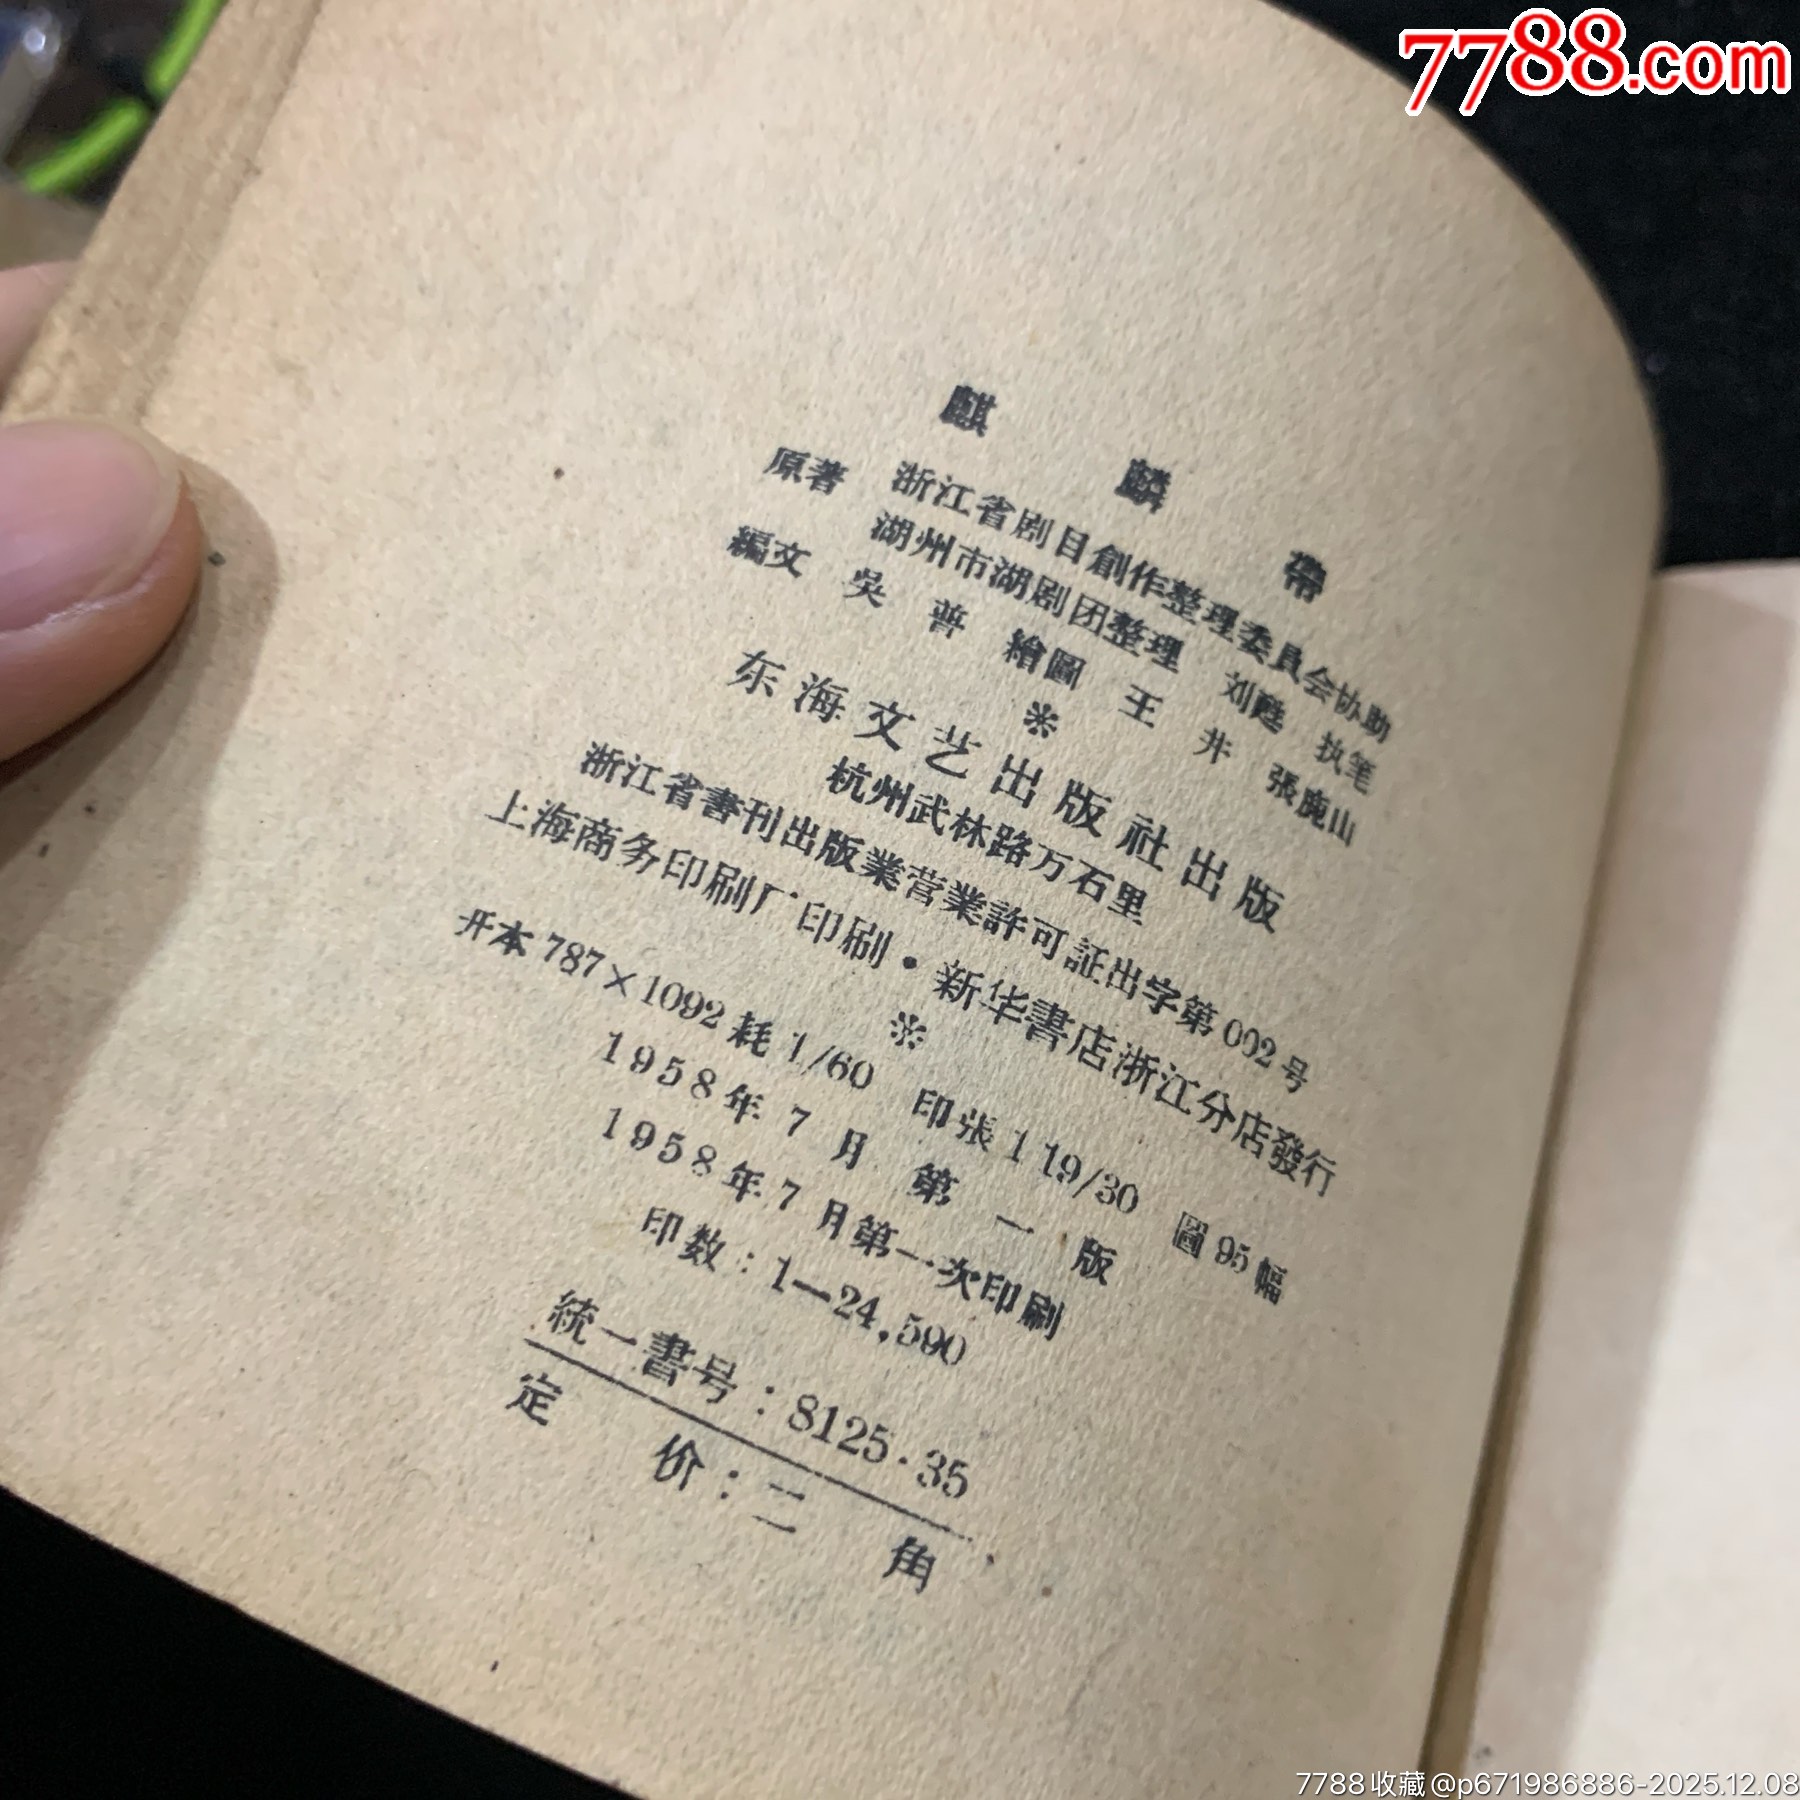 7788.com
麒麟帶
原著 浙江省剧目創作整理委員会协助
湖州市湖剧团整理 刘甦 执笔
編文 吳普 繪圖 王井 張鹿山
东海文艺出版社出版
杭州武林路万石里
浙江省書刊出版業营業許可証出字第002号
上海商务印刷厂印刷·新华書店浙江分店發行
开本 787×1092 耗 1/60 印張 1 19/30 圖 95 幅
1958年7月第一版
1958年7月第一次印刷
印数：1—24,590
統一書号：8125·35
定价：二角
7788收藏@p671986886-2025.12.08